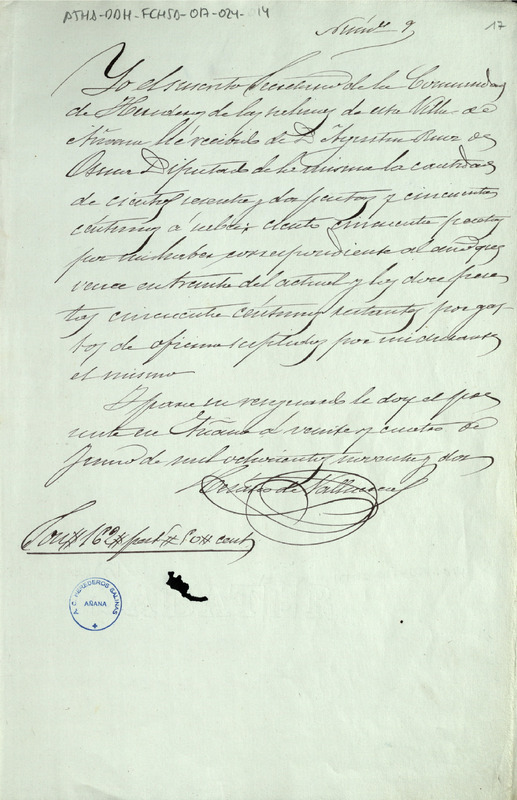 ATHA-DAH-FCHSA-017-024-014
17
Núm.º 9
Yo el infrascrito Secretario de la Comunidad
de Herederos de las salinas de esta Villa de
Añana hé recibido de D. Agustin Ruiz de
Osma Diputado de la misma la cantidad
de ciento sesenta y dos pesetas y cincuenta
céntimos á saber: ciento cincuenta pesetas
por mi haber correspondiente al año que
vence en treinta del actual y las doce pese
tas cincuenta céntimos restantes por gas
tos de oficina suplidos por mi durante
el mismo
Y para su resguardo le doy el pre
sente en Añana á veinte y cuatro de
Junio de mil ochocientos noventa y dos
Son # 162 # pest.s # 50 # cent.
A. C. HEREDEROS SALINAS
AÑANA